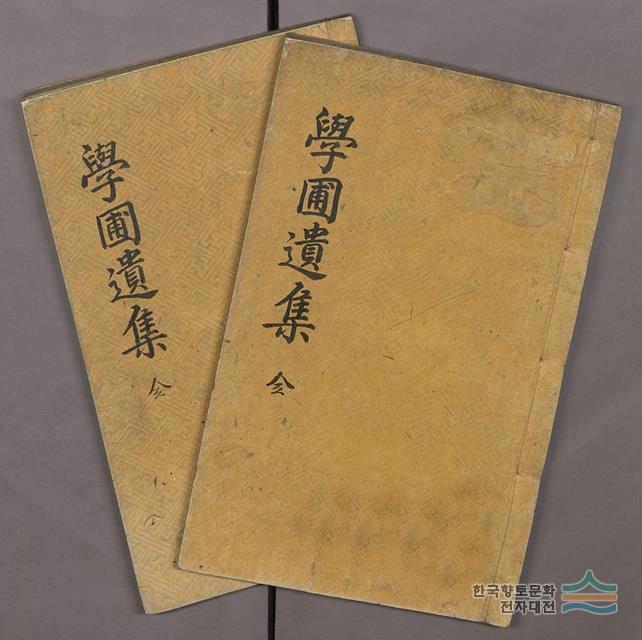 學圃遺集
仝
學圃遺集
仝
한국향토문화
전자대전